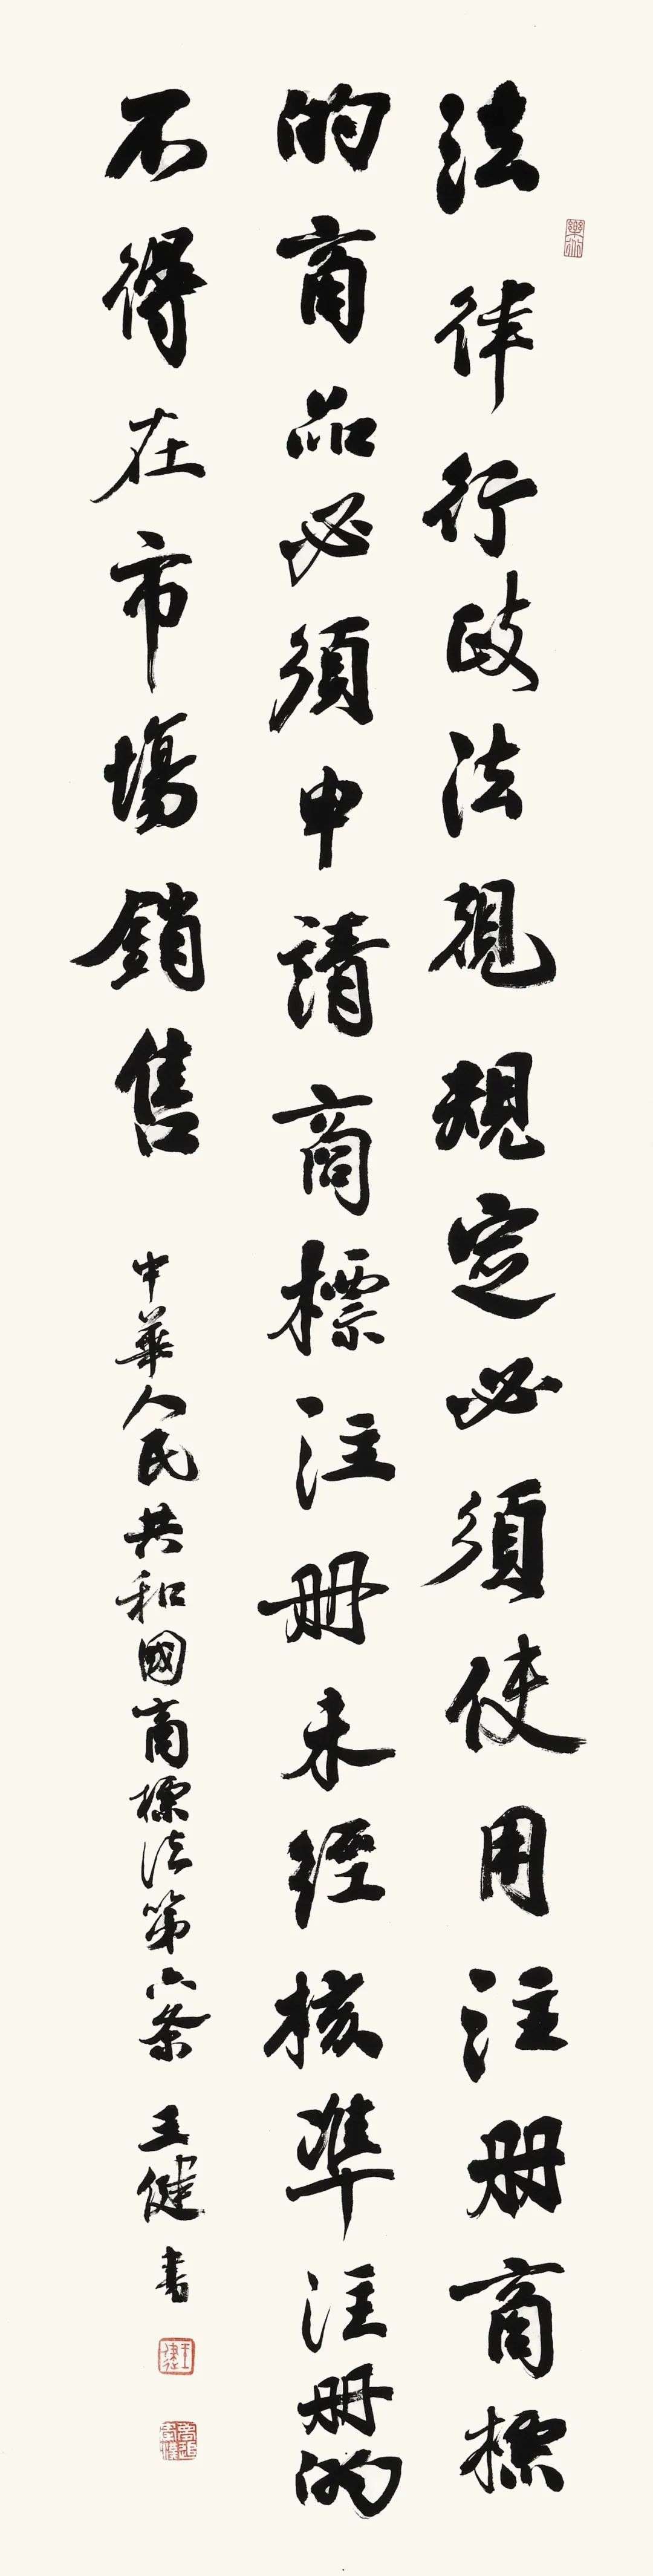 法律行政法規規定必須使用注册商標
的商品必須申請商標注册未經核準注册的
不得在市場銷售
中華人民共和國商標法第六条 王健書